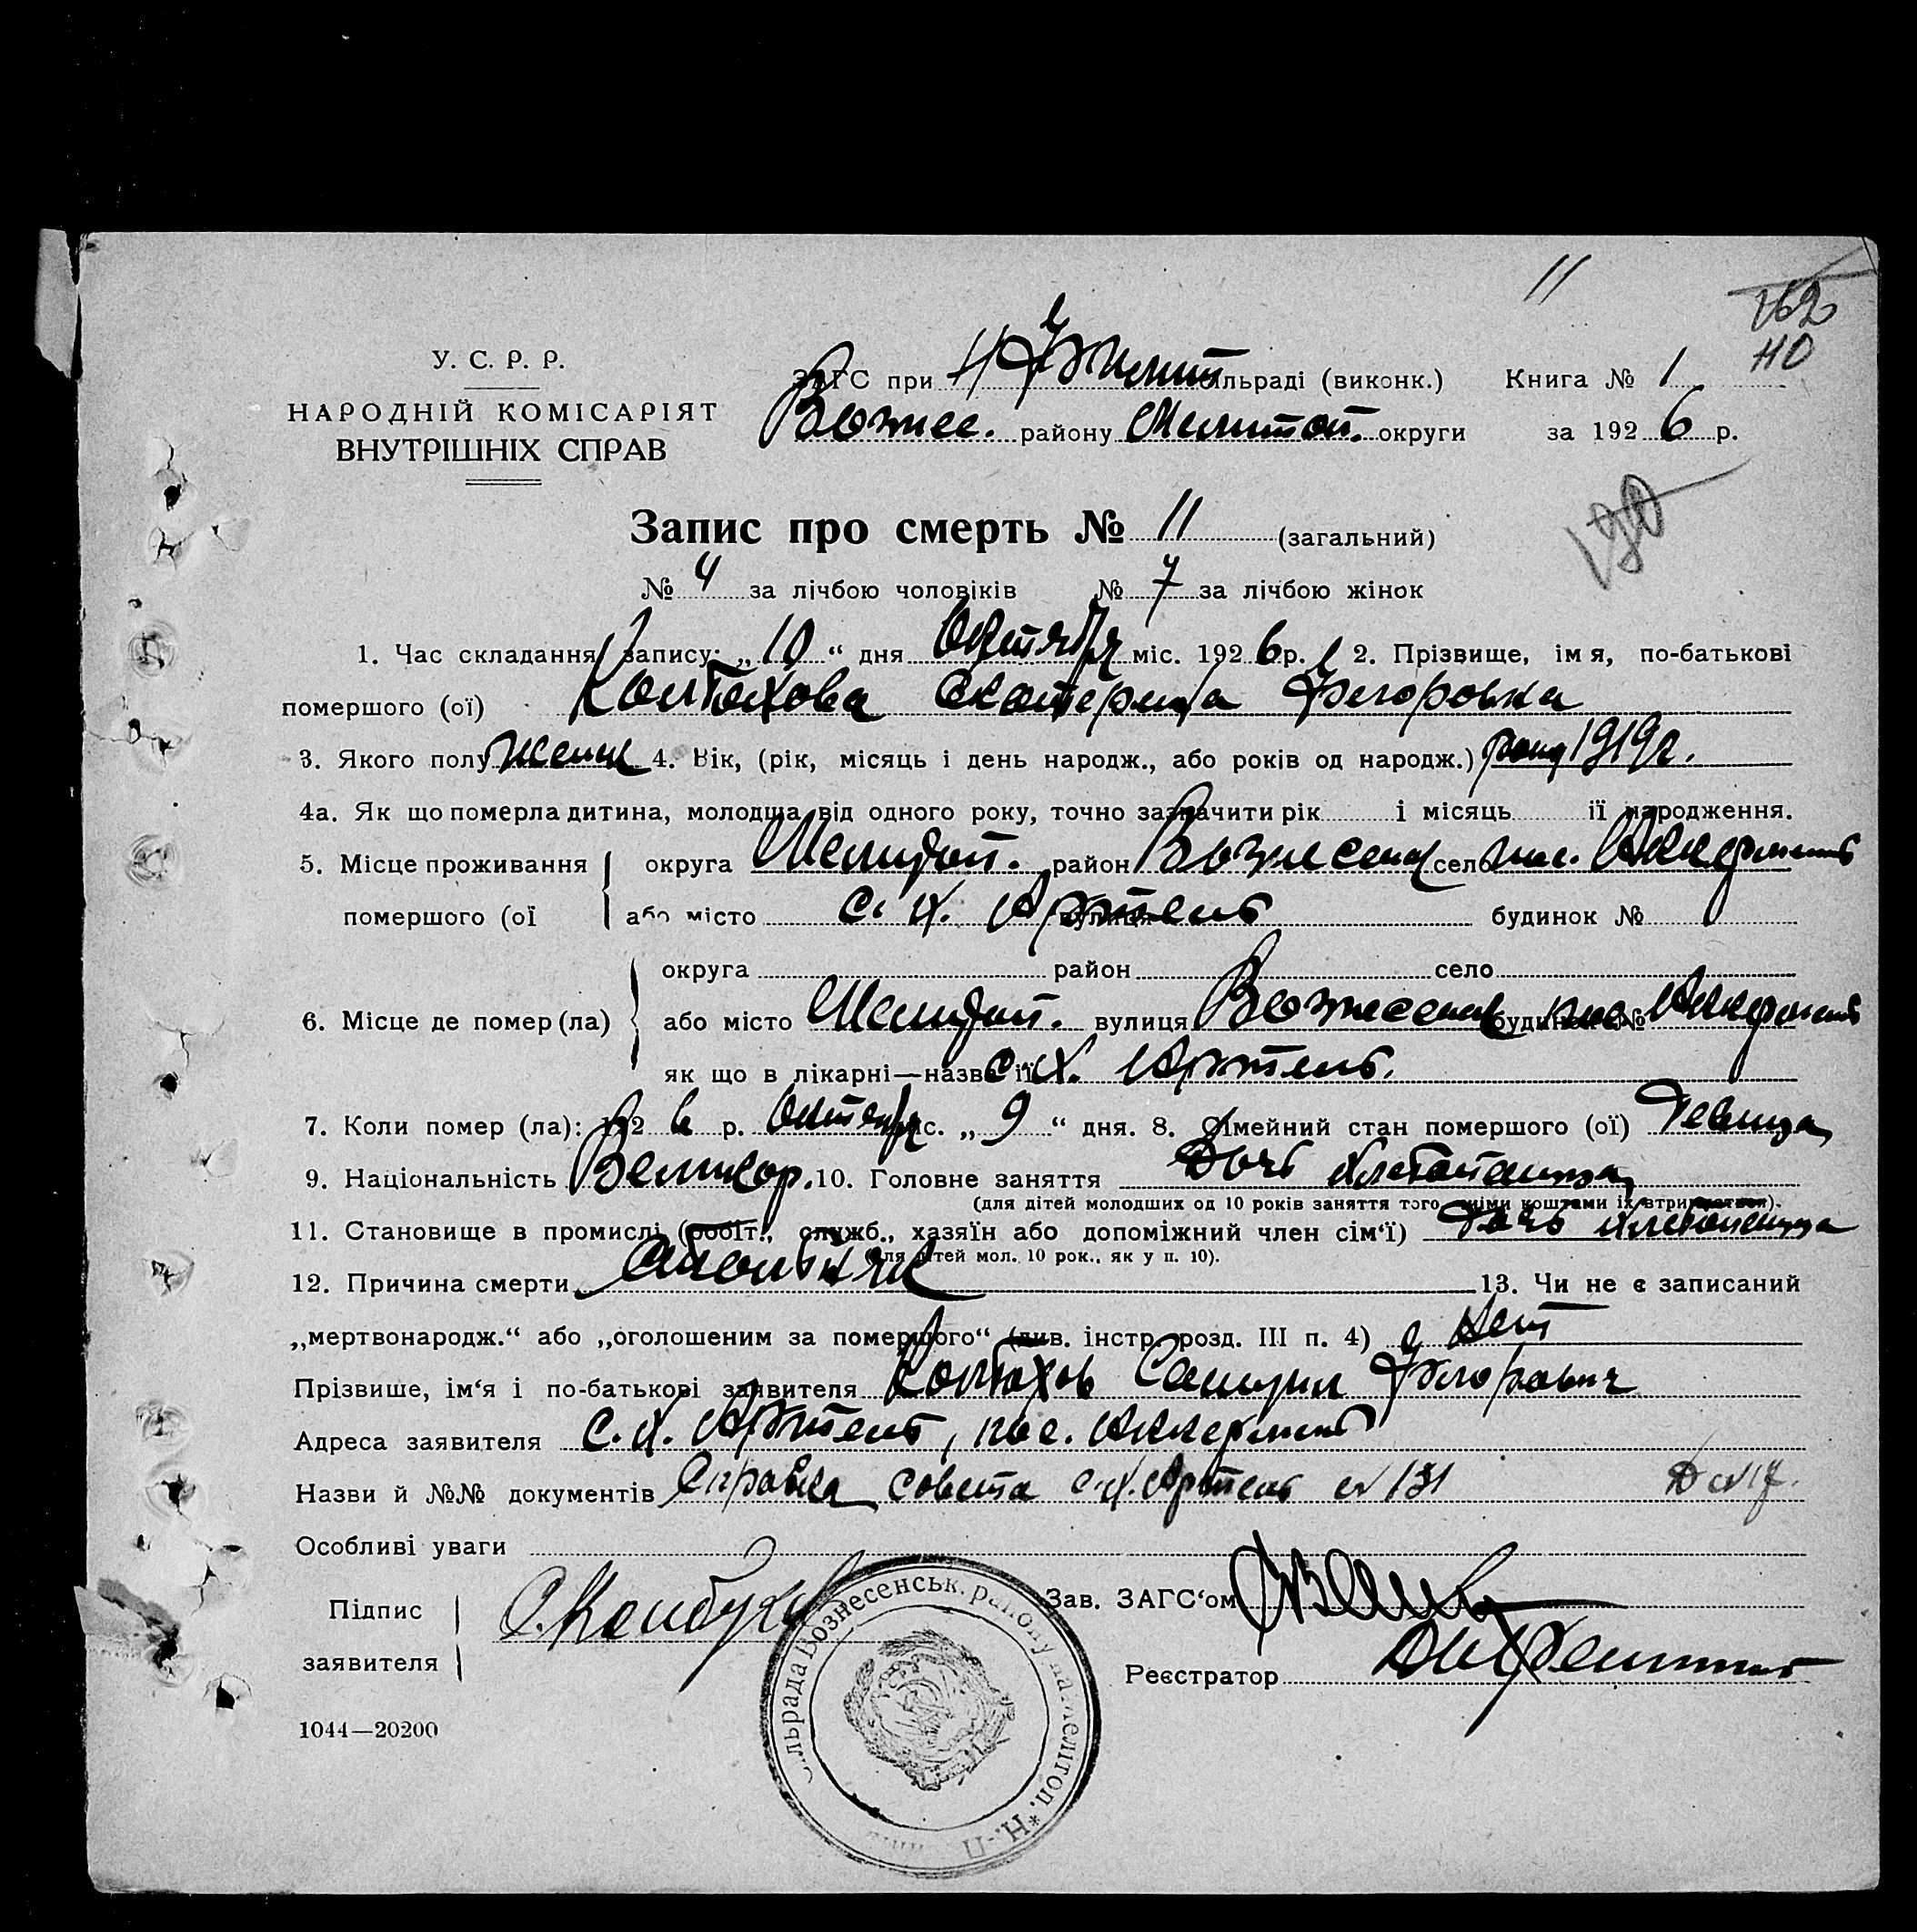 11
162
110
У. С. Р. Р.
НАРОДНІЙ КОМІСАРІЯТ
ВНУТРІШНІХ СПРАВ
ЗАГС при Н льраді (виконк.) Книга № 1
Вознес. району Мелитоп. округи за 1926 р.
Запис про смерть № 11 (загальний)
№ 4 за лічбою чоловіків № 7 за лічбою жінок
1. Час складання запису: „10“ дня Октября міс. 1926 р. 2. Прізвище, імя, по-батькові
помершого (ої) Колбохова Екатерина Егоровна
3. Якого полу женск 4. Вік, (рік, місяць і день народж., або років од народж.) рожд 1919 г.
4а. Як що померла дитина, молодша від одного року, точно зазначити рік і місяць її народження.
5. Місце проживання округа Мелитоп. район Вознесенск село пос. Аккермень
помершого (ої або місто с. х. Артель вулиця будинок №
округа район село
6. Місце де помер (ла) або місто Мелитоп. вулиця Вознесенск будинок № пос. Аккермень
як що в лікарні—назва її с. х. Артель.
7. Коли помер (ла): 1926 р. Октября міс. „9“ дня. 8. Сімейний стан помершого (ої) Девица
9. Національність Великор. 10. Головне заняття Дочь хлебопашца
(для дітей молодших од 10 років заняття того, чіми коштами їх втримається).
11. Становище в промислі (робіт., служб., хазяїн або допоміжний член сім‘ї) Дочь хлебопашца
(для дітей мол. 10 рок., як у п. 10).
12. Причина смерти 13. Чи не є записаний
„мертвонародж.“ або „оголошеним за помершого“ (див. інстр. розд. III п. 4) Нет
Прізвише, ім‘я і по-батькові заявителя Колбохов Самуил Егорович
Адреса заявителя с. х. Артель, пос. Аккермень
Назви й №№ документів Справка совета с. х. Артель № 131 Д № 17.
Особливі уваги
Підпис
заявителя
С. Колбухов
Зав. ЗАГС‘ом
Реєстратор
Сільрада Вознесенськ. району на Мелітоп. * Н.-П
1044—20200